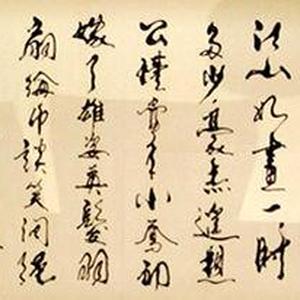 江山如畫一時
多少豪傑遙想
公瑾當年小喬初
嫁了雄姿英發羽
扇綸巾談笑間